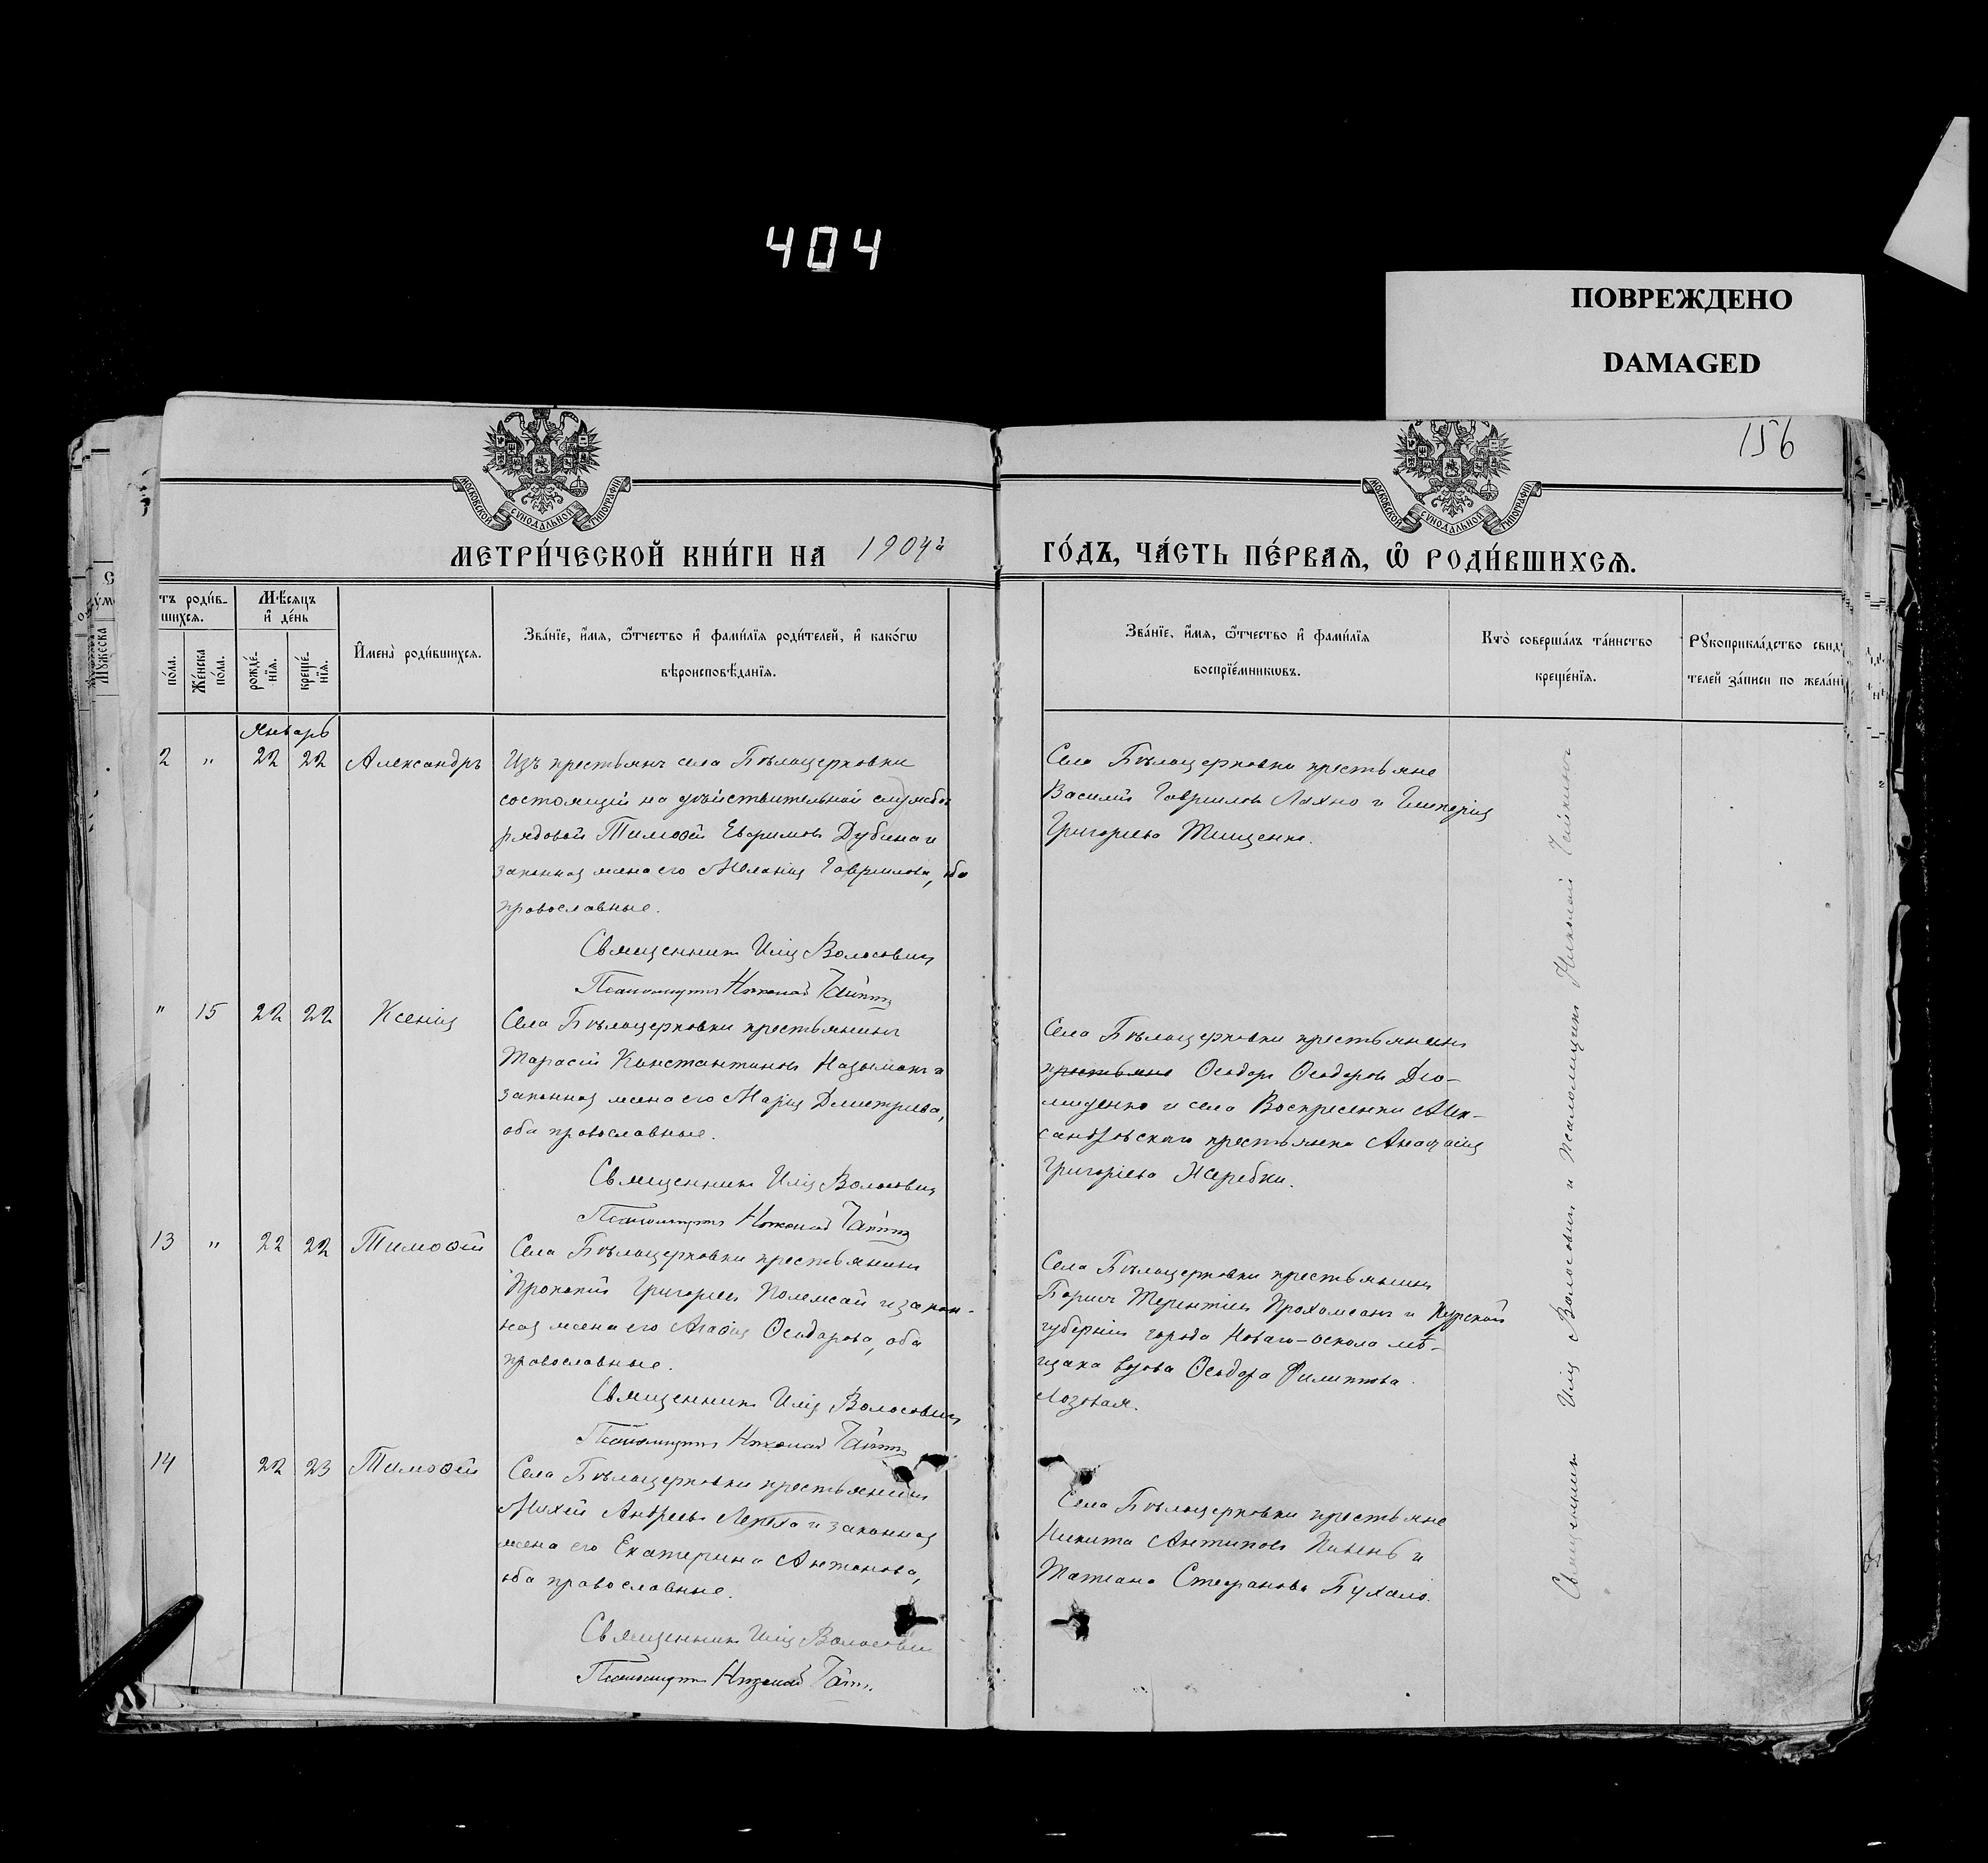 404
ПОВРЕЖДЕНО
DAMAGED
156
МОСКОВСКОЙ СѴНОДАЛЬНОЙ ТИПОГРАФІИ
МОСКОВСКОЙ СѴНОДАЛЬНОЙ ТИПОГРАФІИ
МЕТРИ́ЧЕСКОЙ КНИ́ГИ НА 1904й
ГО́ДЪ, ЧА́СТЬ ПЕ́РВАѦ, Ѽ РОДИ́ВШИХСѦ.
тъ роди́в-
шихсѧ.
Мѣ́сѧцъ
и҆ де́нь
по́ла.
Же́нска
по́ла.
рожде́-
нїѧ.
креще́-
нїѧ.
И҆мена̀ роди́вшихсѧ.
Зва́нїе, и҆́мѧ, ѻ҆́тчество и҆ фами́лїѧ роди́телей, и҆ како́гѡ
вѣроисповѣ́данїѧ.
Зва́нїе, и҆́мѧ, ѻ҆́тчество и҆ фами́лїѧ
воспрїе́мникѡвъ.
Кто̀ соверша́лъ та́инство
креще́нїѧ.
Рꙋкоприкла́дство свид
телей за́писи по жела́нї
Январь
2 " 22 22 Александръ
Изъ крестьянъ села Бѣлоцерковки
состоящій на дѣйствительной службѣ
рядовой Тимоѳей Евфимовъ Дубина и
законная жена его Меланія Гаврилова, оба
православные.
Священникъ Илія Волосовичъ
Псаломщикъ Николай
Села Бѣлоцерковки крестьяне
Василій Гавриловъ Ляхно и Гликерія
Григорьева Тищенко.
" 15 22 22 Ксенія
Села Бѣлоцерковки крестьянинъ
Тарасій Константиновъ и
законная жена его Марія Дмитріева,
оба православные.
Священникъ Илія Волосовичъ
Псаломщикъ Николай
Села Бѣлоцерковки крестьянинъ
крестьяне Ѳеодоръ Ѳеодоровъ Дио-
миденко и села Воскресенки Алек-
сандровскаго крестьянка Анастасія
Григоріева Жеребки.
13 " 22 22 Тимоѳей
Села Бѣлоцерковки крестьянинъ
Прокопій Григорьевъ и закон-
ная жена его Агаѳія Ѳеодорова, оба
православные.
Священникъ Илія Волосовичъ
Псаломщикъ Николай
Села Бѣлоцерковки крестьянинъ
Борисъ Терентіевъ и Курской
губерніи города Новаго-Оскола мѣ-
щанка вдова Ѳеодора Филиппова
Лозовая.
14 22 23 Тимоѳей
Села Бѣлоцерковки крестьянинъ
Михей Андреевъ Лепеха и законная
жена его Екатерина Антонова,
оба православные.
Священникъ Илія Волосовичъ
Псаломщикъ Николай
Села Бѣлоцерковки крестьяне
Никита Антиповъ Пивень и
Татіана Стефанова Бухало.
Священникъ Илія Волосовичъ и псаломщикъ Николай